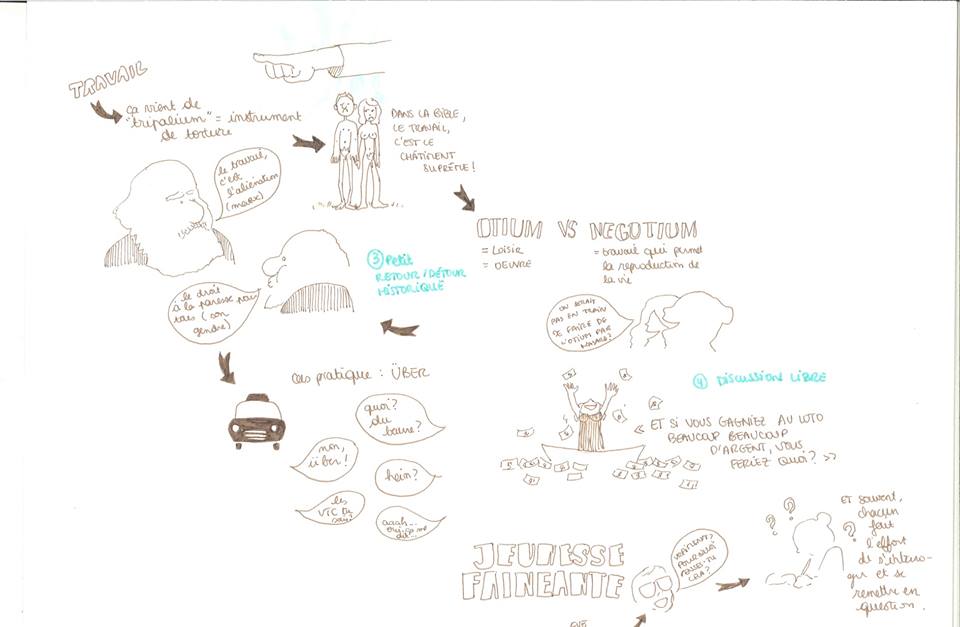 TRAVAIL
ça vient de
"tripalium" = instrument
de torture
DANS LA BIBLE,
LE TRAVAIL,
C'EST LE
CHÂTIMENT
SUPRÊME !
le travail,
c'est
l'aliénation
(marx)
OTIUM VS NEGOTIUM
= LOISIR
= OEUVRE
= travail qui permet
la reproduction de
la vie
③ Petit
RETOUR/DÉTOUR
HISTORIQUE
le droit
à la paresse pour
tous (son
gendre)
ON SERAIT
PAS EN TRAIN
DE FAIRE DE
L'OTIUM PAR
HASARD?
Cas pratique : ÜBER
quoi?
du
beurre?
non,
über !
hein?
les
VTC
aaah...
④ DISCUSSION LIBRE
« ET SI VOUS GAGNIEZ AU LOTO
BEAUCOUP BEAUCOUP
D'ARGENT, VOUS
FERIEZ QUOI? »
JEUNESSE
FAINEANTE
VRAIMENT?
POURQUOI
PENSES-TU
CELA?
? ? ?
ET souvent,
chacun
fait
l'effort
de s'interro-
ger et se
remettre en
question.